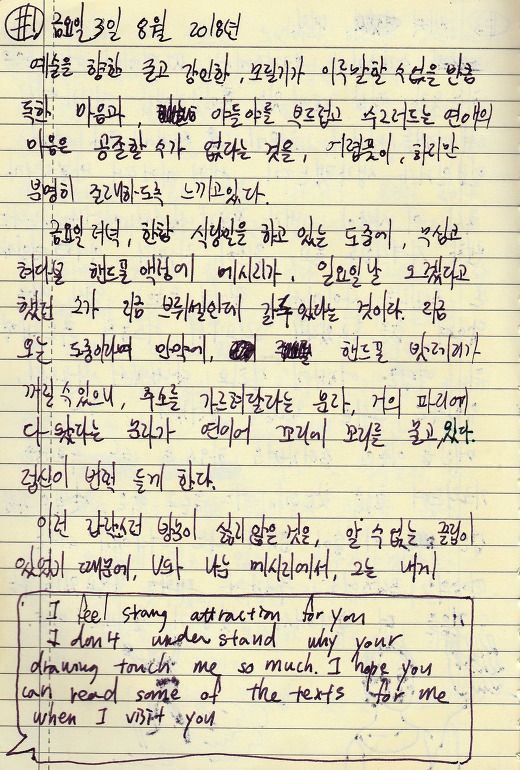 #1 금요일 3일 8월 2018년
예술을 향한 곧고 강인한, 모질기가 이루말할 수 없을 만큼
독한 마음과, 아들아를 부드럽고 수그러드는 연애의
마음은 공존할 수가 없다는 것을, 어렴풋이, 하지만
분명히 존재하도록 느끼고있다.
금요일 저녁, 한참 식당일을 하고 있는 도중에, 무심코
쳐다본 핸드폰 액정에 메시지가, 일요일날 오겠다고
했던 그가 지금 브뤼셀인데 갈수 있다는 것이라. 지금
오는 도중이라며 만약에, 핸드폰 밧데리가
꺼질 수 있으니, 주소를 가르쳐달라는 문자, 거의 파리에
다 왔다는 문자가 연이어 꼬리에 꼬리를 물고, 있다.
정신이 번쩍 들게 한다.
이런 갑작스런 방문이 싫지않은 것을, 알 수 없는 끌림이
있었기 때문에, V와 나눈 메시지에서, 그는 내게
I feel strang attraction for you
I don4 under stand why your
drawing touch me so much. I hope you
can read some of the texts for me
when I visit you